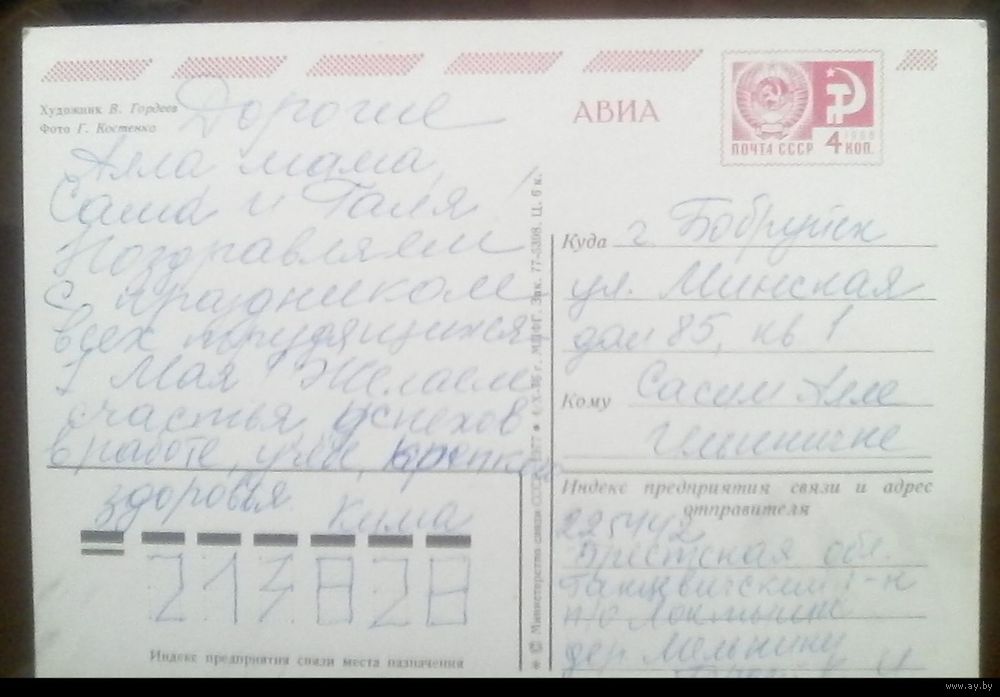 Художник В. Гордеев
Фото Г. Костенко
АВИА
ПОЧТА СССР 4 КОП.
1966
Дорогие
Алла мама,
Саша и Галя!
Поздравляем
с праздником
всех трудящихся
1 Мая Желаем
счастья, успехов
в работе, учёбе, крепкого
здоровья.
Кима
213828
Индекс предприятия связи места назначения
Министерство связи СССР 1977 г. МПФГ. Зак. 77-3308. Ц. 6 к.
Куда г. Бобруйск
ул. Минская
дом 85, кв 1
Кому Сасим Алле
Ильиничне
Индекс предприятия связи и адрес
отправителя
225442
Брестская обл.
Ганцевичский р-н
п/о Локтыши
дер Мельники
www.ay.by